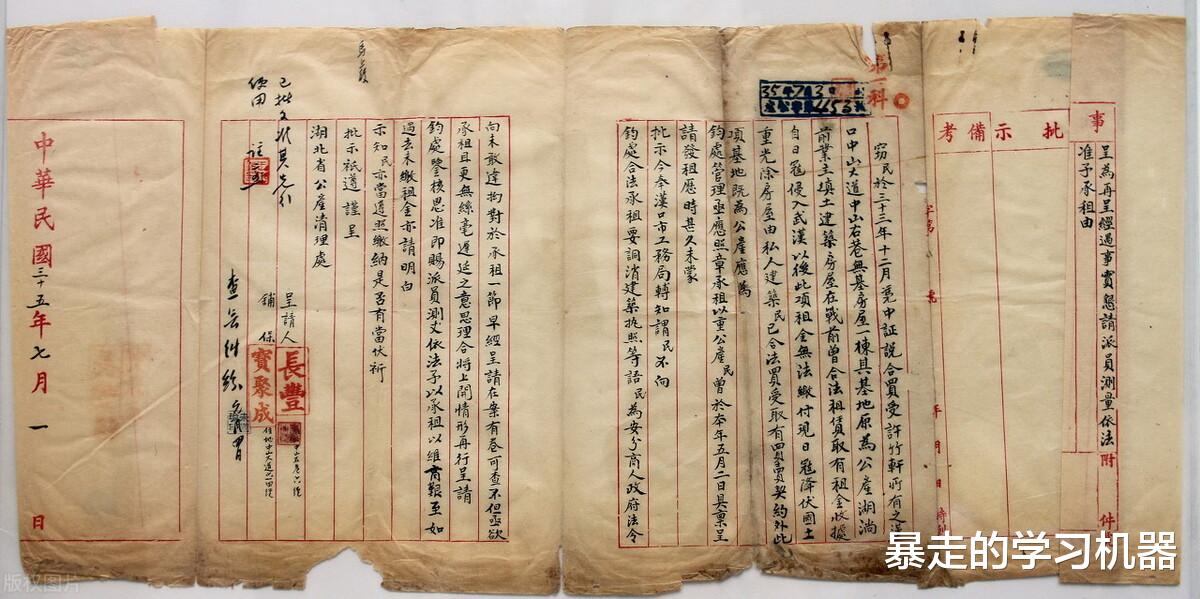 事
呈為再呈經過事實懇請派員測量依法
准予承租由
附 件
批示備考
字第 號
年 月 日 時到
第一科
35年7月3日
窃民於三十三年十二月憑中証説合買受許竹軒所有之漢
口中山大道中山右巷無基房屋一棟其基地原為公產湖淌
前業主填土建築房屋在戰前曾合法租賃取有租金收據
自日寇侵入武漢以後此項租金無法繳付現日寇降伏國土
重光除房屋由私人建築民已合法買受取有買賣契約外此
項基地既為公產應為
鈞處管理亟應照章承租以重公產民曾於本年五月二日具稟呈
請發租應時甚久未蒙
批示今奉漢口市工務局轉知謂民不向
鈞處合法承租要詞消建築執照等語民為安分商人政府法令
向未敢違拘對於承租一節早經呈請在案有卷可查不但亟欲
承租且更無絲毫遲延之意思理合將上開情形再行呈請
鈞處鑒核恩准即賜派員測丈依法予以承租以維商艱至如
過去未繳租金亦請明白
示知民亦當遵照繳納是否有當伏祈
批示祇遵 謹呈
湖北省公產清理處
呈請人 長豐
鋪保 寶聚成
住地中山大道
中華民國三十五年七月一日
暴走的学习机器
版权图片